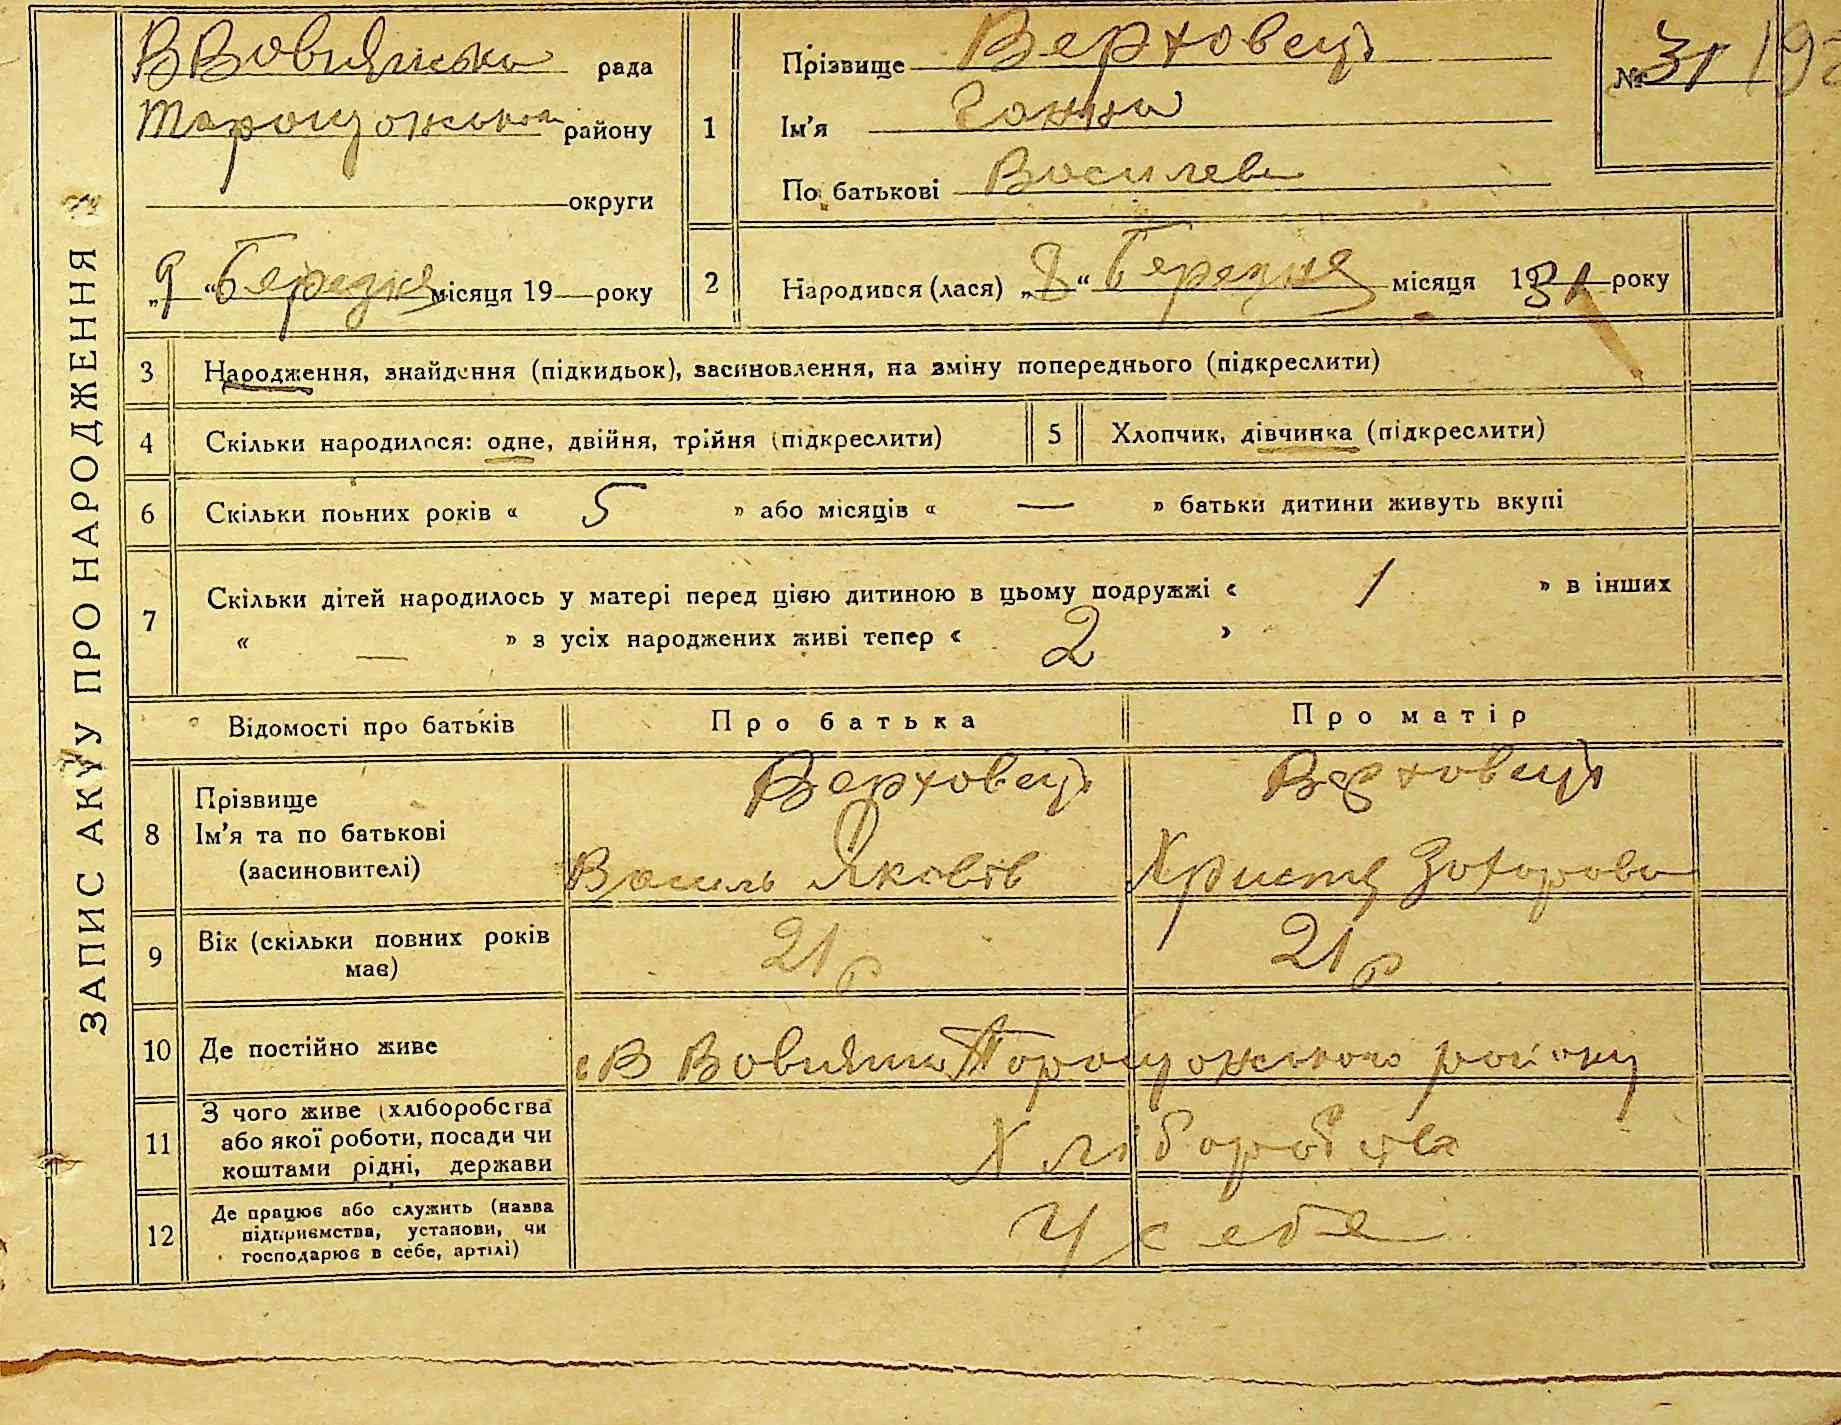 ЗАПИС АКТУ ПРО НАРОДЖЕННЯ
В Вовнянська рада
Таращанського району
округи
„9“ Березня місяця 19 року
1
Прізвище Верховець
Ім'я Ганна
По батькові Василева
№ 31
2 Народився (лася) „8“ Березня місяця 1931 року
3 Народження, знайдення (підкидьок), засиновлення, на зміну попереднього (підкреслити)
4 Скільки народилося: одне, двійня, трійня (підкреслити)
5 Хлопчик, дівчинка (підкреслити)
6 Скільки повних років « 5 » або місяців « — » батьки дитини живуть вкупі
7 Скільки дітей народилось у матері перед цією дитиною в цьому подружжі « 1 » в інших
« — » з усіх народжених живі тепер « 2 »
Відомості про батьків Про батька Про матір
8 Прізвище Верховець Верховець
Ім'я та по батькові Василь Яковів Христя Захарова
(засиновителі)
9 Вік (скільки повних років має) 21 р 21 р
10 Де постійно живе с В Вовнянка Таращанського району
11 З чого живе (хліборобства
або якої роботи, посади чи
коштами рідні, держави
Хліборобства
12 Де працює або служить (назва
підприємства, установи, чи
господарює в себе, артілі)
У себе